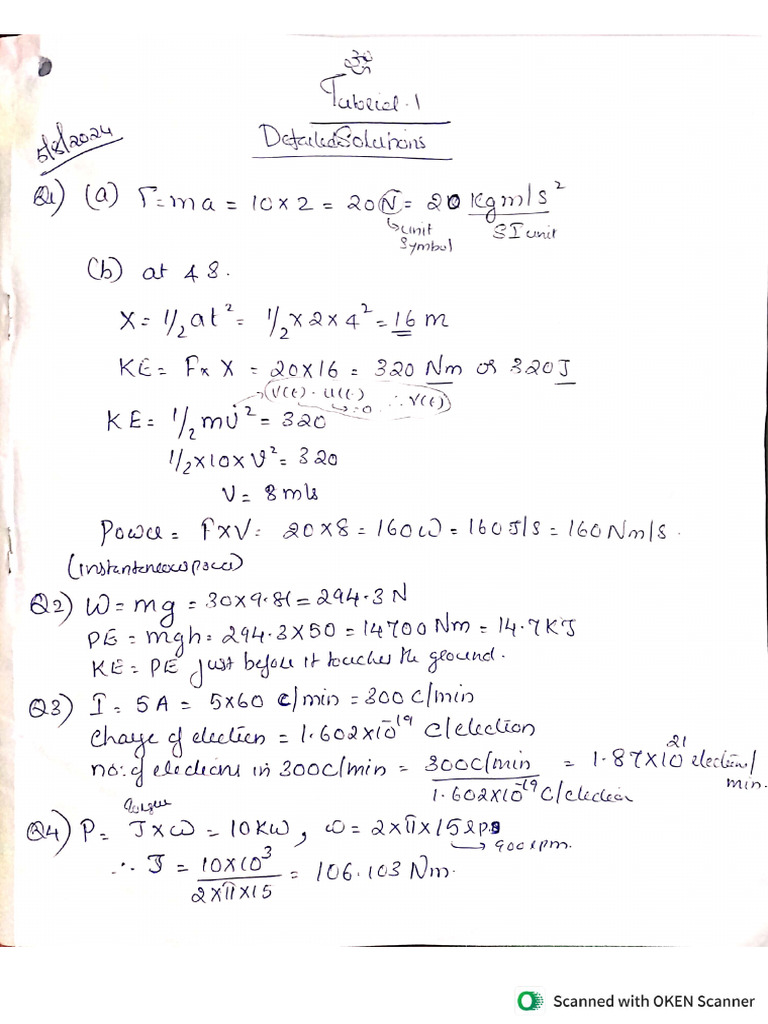 ॐ
Tutorial.1
Detailed Solutions
5/8/2024
Q1) (a) F=ma = 10×2 = 20 N = 20 Kgm/s²
↳unit symbol
SI unit
(b) at 4 S.
X = 1/2 at² = 1/2 × 2 × 4² = 16 m
KE = F× X = 20×16 = 320 Nm or 320J
→ (V(t) - U(t)) ∴ V(t)
↳ = 0
KE = 1/2 mv² = 320
1/2 ×10× V² = 320
V = 8 m/s
Power = F×V = 20×8 = 160W = 160J/S = 160Nm/S.
(instantaneous power)
Q2) W = mg = 30×9.81 = 294.3 N
PE = mgh = 294.3×50 = 14700 Nm = 14.7 KJ
KE = PE just before it touches the ground.
Q3) I = 5A = 5×60 C/min = 300 C/min
Charge of electron = 1.602×10⁻¹⁹ C/electron
no: of electrons in 300C/min = 300C/min / 1.602×10⁻¹⁹ C/electron = 1.87×10²¹ electron/min.
Torque
Q4) P = J×ω = 10KW, ω = 2×π×15 rps
→ 900 rpm.
∴ J = 10×10³ / 2×π×15 = 106.103 Nm.
Scanned with OKEN Scanner